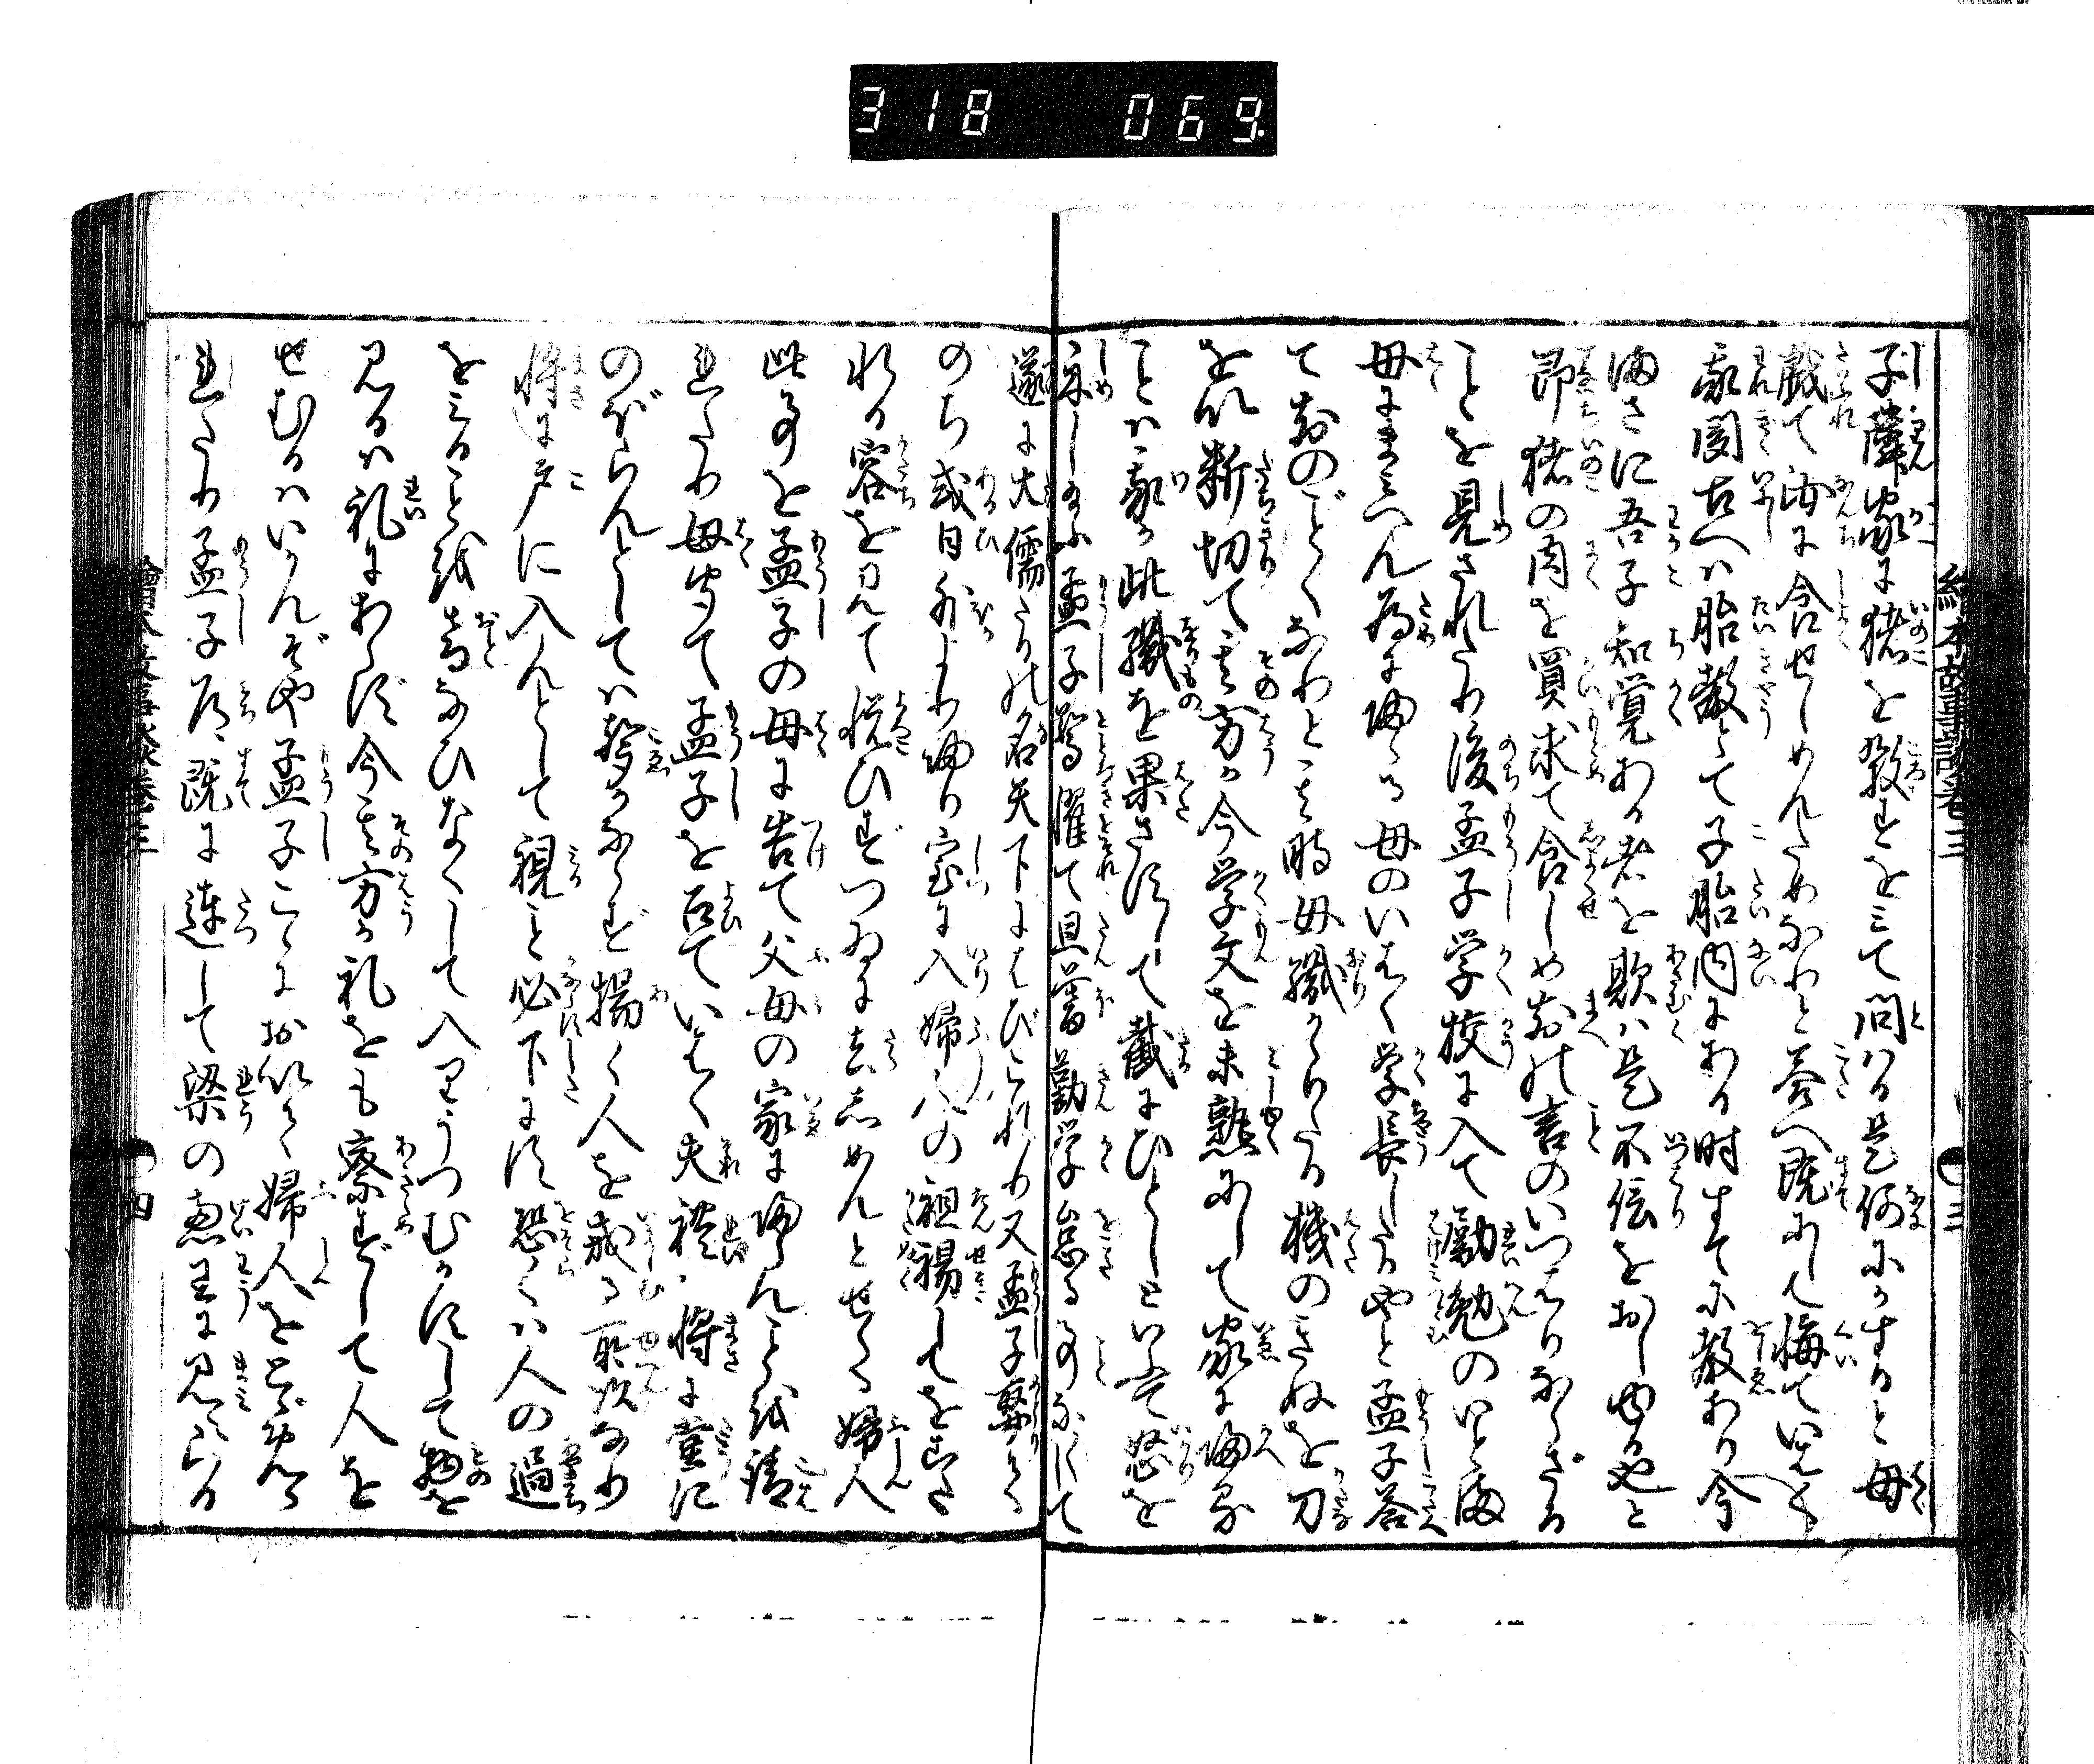 318 069.
絵本故事談巻三
三
子隣家に猪を殺すをミて問いはく是何にかすると母
戯て汝に食せしめんためなりと答へ既にして悔ていはく
我聞古へハ胎教とて子胎内にある時すでに教あり今
適さに吾子知覚ある者を欺ハ是不信をおしゆるやと
即猪の肉を買求て食しめ前の言のいつはりならざる
ことを見されたり後孟子学校に入て勵勉のいとま
母にまみへん為に帰る母のいはく学長したるやと孟子答
て前のごとくなりと其時母織かゝりたる機のきぬを刀
を以断切て其方が今学文を未熟にして家に帰る
ことハ我が此織を果さずして截にひとしといふて怒を
示し給ふ孟子驚懼て旦暮勤学怠る事なくして
遂に大儒たり其名天下にはびこれり又孟子娶りて
のち或日外より帰り室に入婦人の袒裼してをはさ
れる容を見て悦ひずつゐに去しめんとせらる婦人
此事を孟子の母に告て父母の家に帰らんことを請
れたり母聞て孟子を召ていはく夫禮ハ将に堂に
のぼらんとしてハ聲かならず揚く人を戒る所以なり
将に戸に入んとして視こと必下にす恐らくハ人の過
をミることを戒なりなひなくして入りうつむかずして
見るハ礼にあらず今其方が礼をも察ずして人を
せむるハいかんぞや孟子こゝにおいて婦人をとゞめら
れたり孟子乃既に達して梁の恵王に見へらる
絵本故事談巻三
四